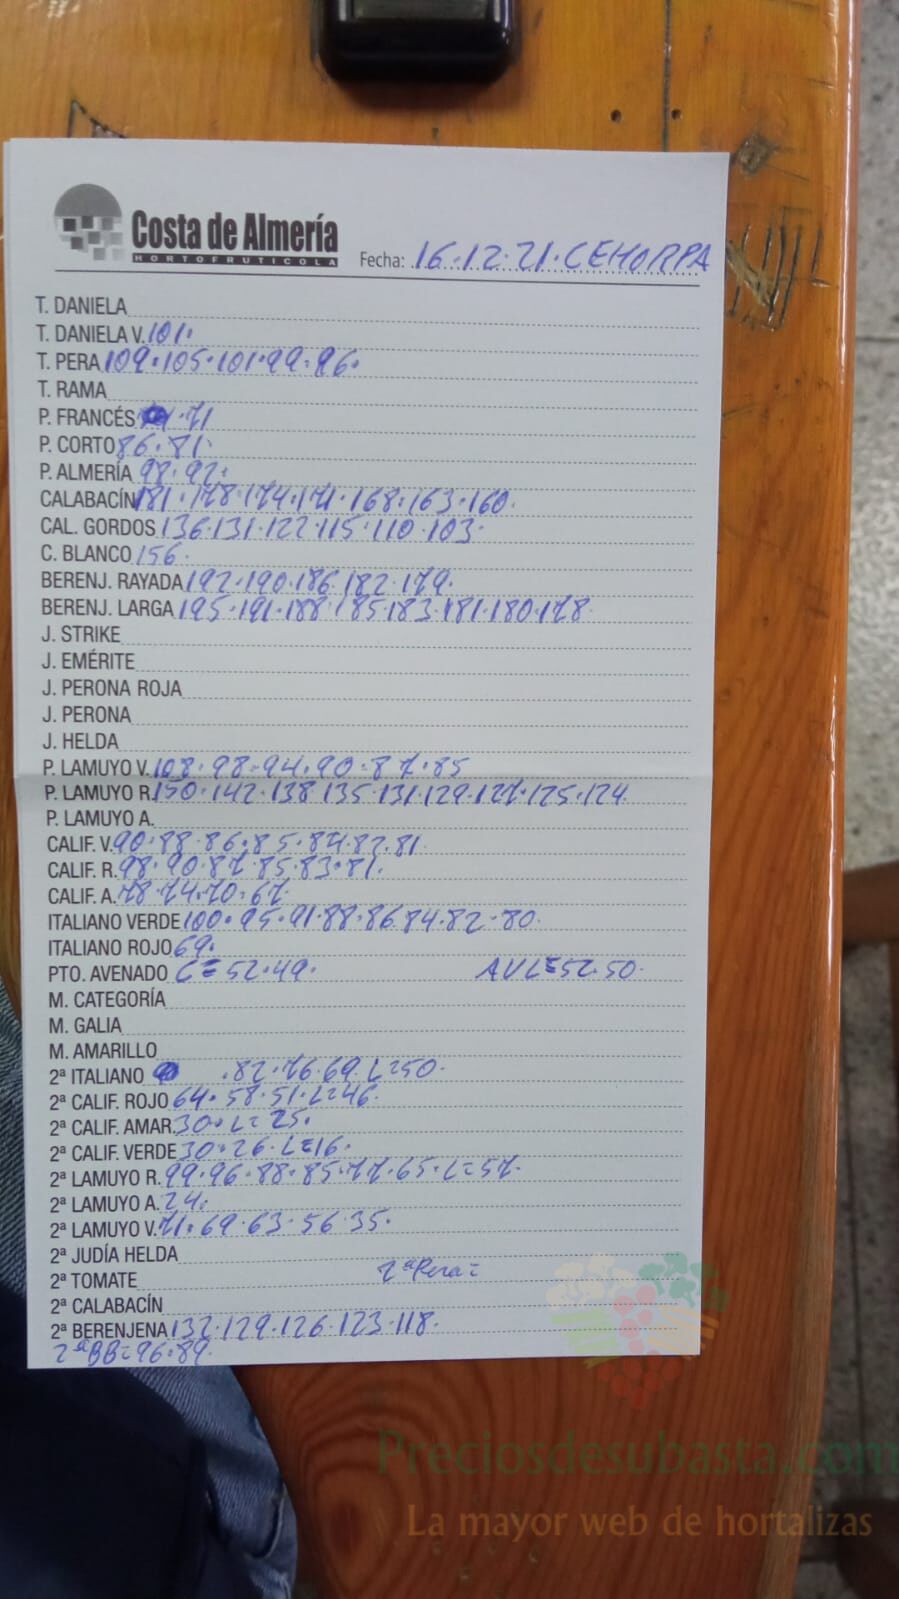 Costa de Almería
HORTOFRUTICOLA
Fecha: 16.12.21.CEHORPA
T. DANIELA
T. DANIELA V. 101.
T. PERA 109.105.101.99.96.
T. RAMA
P. FRANCÉS .71
P. CORTO 86.81.
P. ALMERÍA 98.92.
CALABACÍN 181.178.174.171.168.163.160.
CAL. GORDOS 136.131.122.115.110.103.
C. BLANCO 156.
BERENJ. RAYADA 192.190.186.182.179.
BERENJ. LARGA 195.191.188.185.183.181.180.178.
J. STRIKE
J. EMÉRITE
J. PERONA ROJA
J. PERONA
J. HELDA
P. LAMUYO V. 108.98.94.90.87.85
P. LAMUYO R. 150.142.138.135.131.129.127.125.124.
P. LAMUYO A.
CALIF. V. 90.88.86.85.84.82.81
CALIF. R. 98.90.87.85.83.81.
CALIF. A. 78.74.70.67
ITALIANO VERDE 100.95.91.88.86.84.82.80.
ITALIANO ROJO 69.
PTO. AVENADO C=52.49. AVL=52.50.
M. CATEGORÍA
M. GALIA
M. AMARILLO
2ª ITALIANO .82.76.69.L=50.
2ª CALIF. ROJO 64.58.51.L=46.
2ª CALIF. AMAR. 30.L=25.
2ª CALIF. VERDE 30.26.L=16.
2ª LAMUYO R. 99.96.88.85.77.65.L=57.
2ª LAMUYO A. 24.
2ª LAMUYO V. 71.69.63.56.35.
2ª JUDÍA HELDA
2ª TOMATE 2ªPera=
2ª CALABACÍN
2ª BERENJENA 132.129.126.123.118.
2ªBB=96.89.
Preciosdesubasta.com
La mayor web de hortalizas